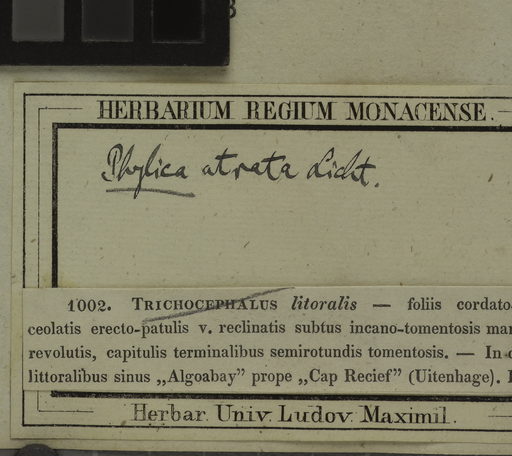 HERBARIUM REGIUM MONACENSE.
Phylica atrata Licht.
1002. TRICHOCEPHALUS litoralis — foliis cordato-
ceolatis erecto-patulis v. reclinatis subtus incano-tomentosis mar
revolutis, capitulis terminalibus semirotundis tomentosis. — In
littoralibus sinus „Algoabay” prope „Cap Recief” (Uitenhage).
Herbar. Univ. Ludov. Maximil.